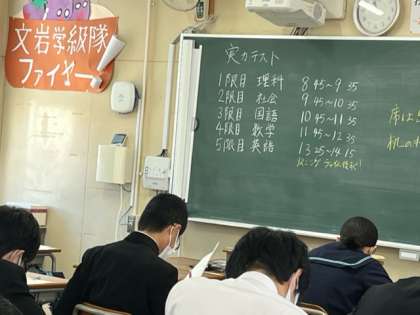 文岩学級隊
ファイヤー!
実力テスト
1限目 理科 8 45~9 35
2限目 社会 9 45~10 35
3限目 国語 10 45~11 35
4限目 数学 11 45~12 35
5限目 英語 13 25~14 15
席は
机の